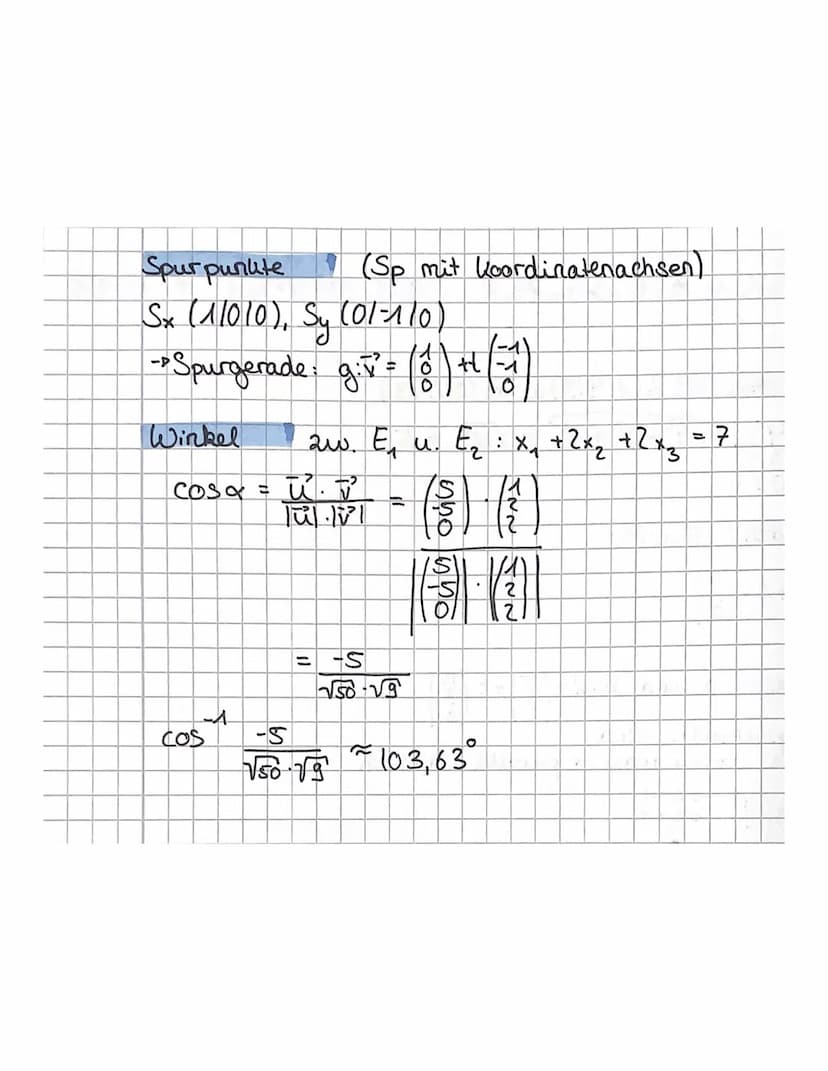 Spurpunkte (Sp mit Koordinatenachsen)
Sx (1/0/0), Sy (0/-1/0)
→ Spurgerade: g: v⃗ = (1 0 0) + t (-1 -1 0)
Winkel zw. E₁ u. E₂ : x₁ + 2x₂ + 2x₃ = 7
cos α = u⃗ · v⃗ / |u⃗| · |v⃗| = (5 -5 0) · (1 2 2) / |(5 -5 0)| · |(1 2 2)|
= -5 / √50 · √9
cos⁻¹ -5 / √50 · √9 ≈ 103,63°